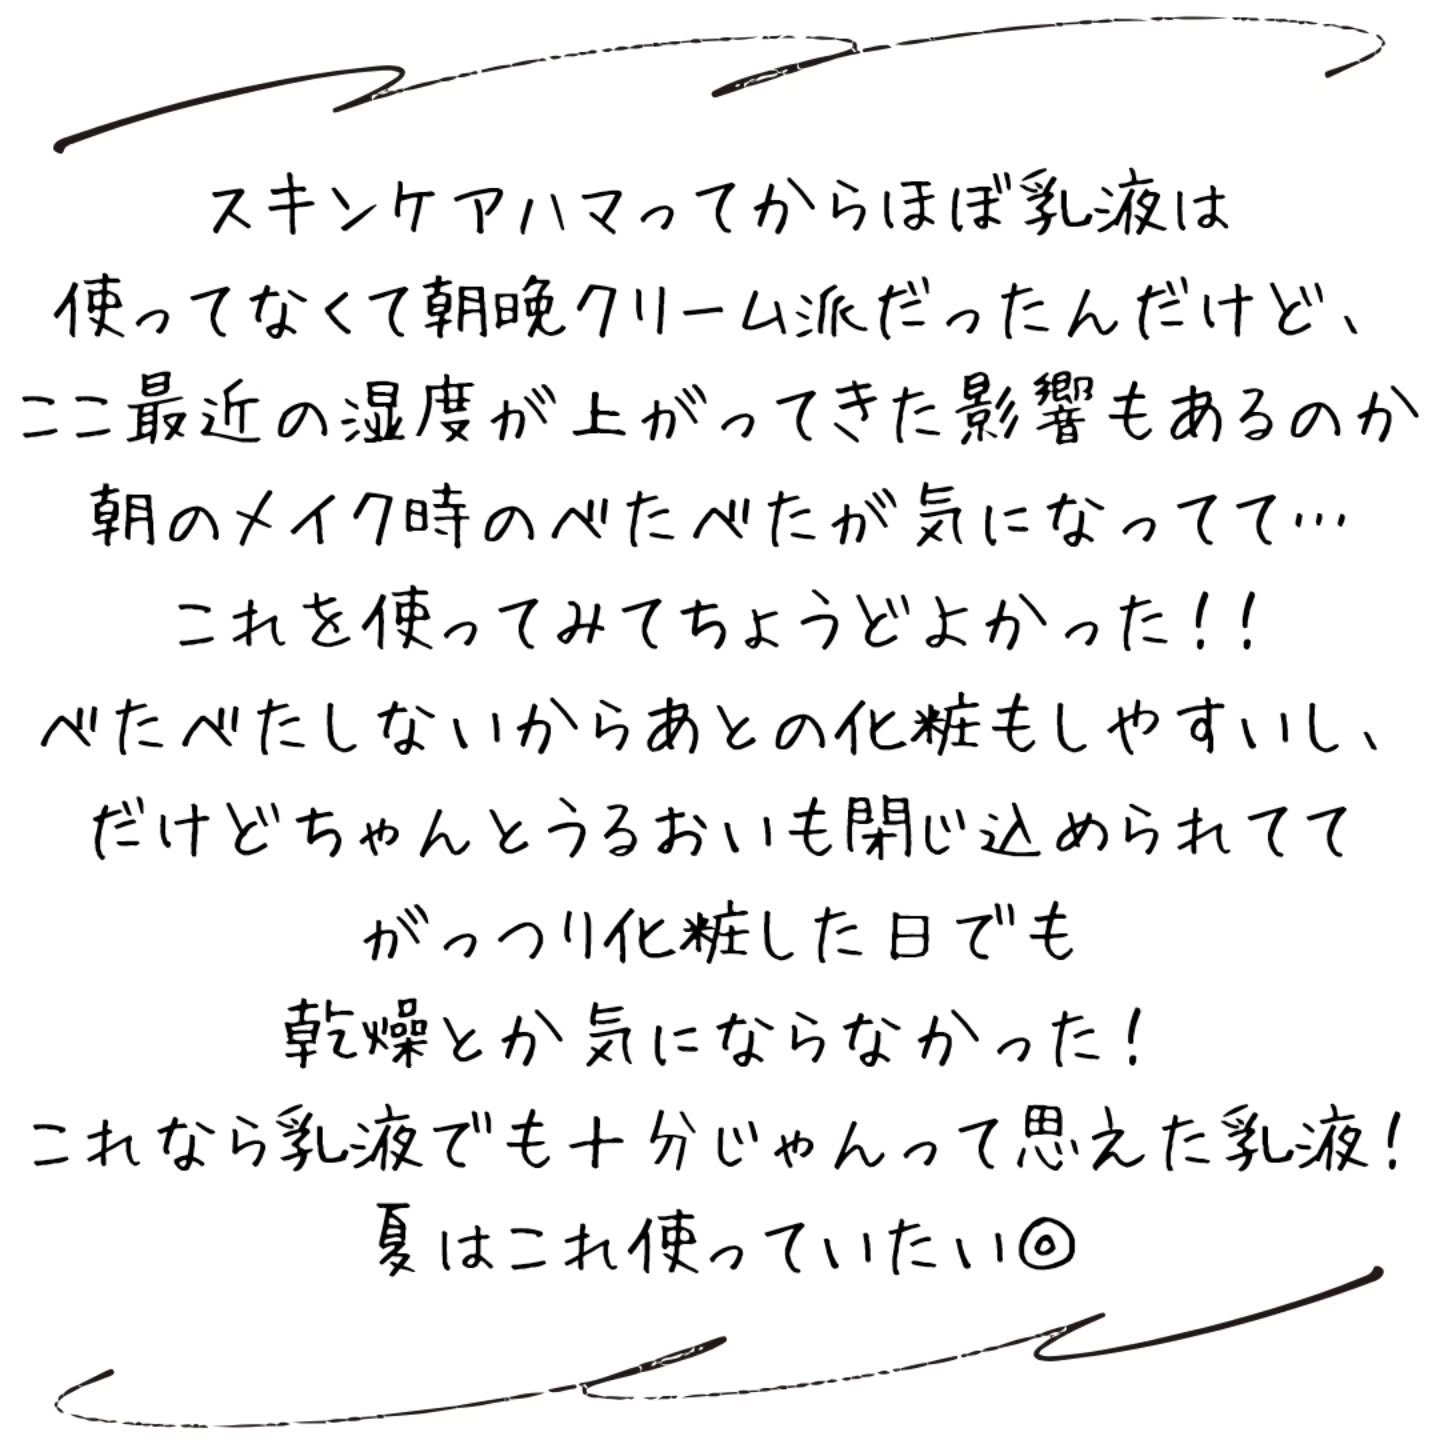 スキンケアハマってからほぼ乳液は
使ってなくて朝晩クリーム派だったんだけど、
ここ最近の湿度が上がってきた影響もあるのか
朝のメイク時のべたべたが気になってて…
これを使ってみてちょうどよかった!!
べたべたしないからあとの化粧もしやすいし、
だけどちゃんとうるおいも閉じ込められてて
がっつり化粧した日でも
乾燥とか気にならなかった!
これなら乳液でも十分じゃんって思えた乳液!
夏はこれ使っていたい◎